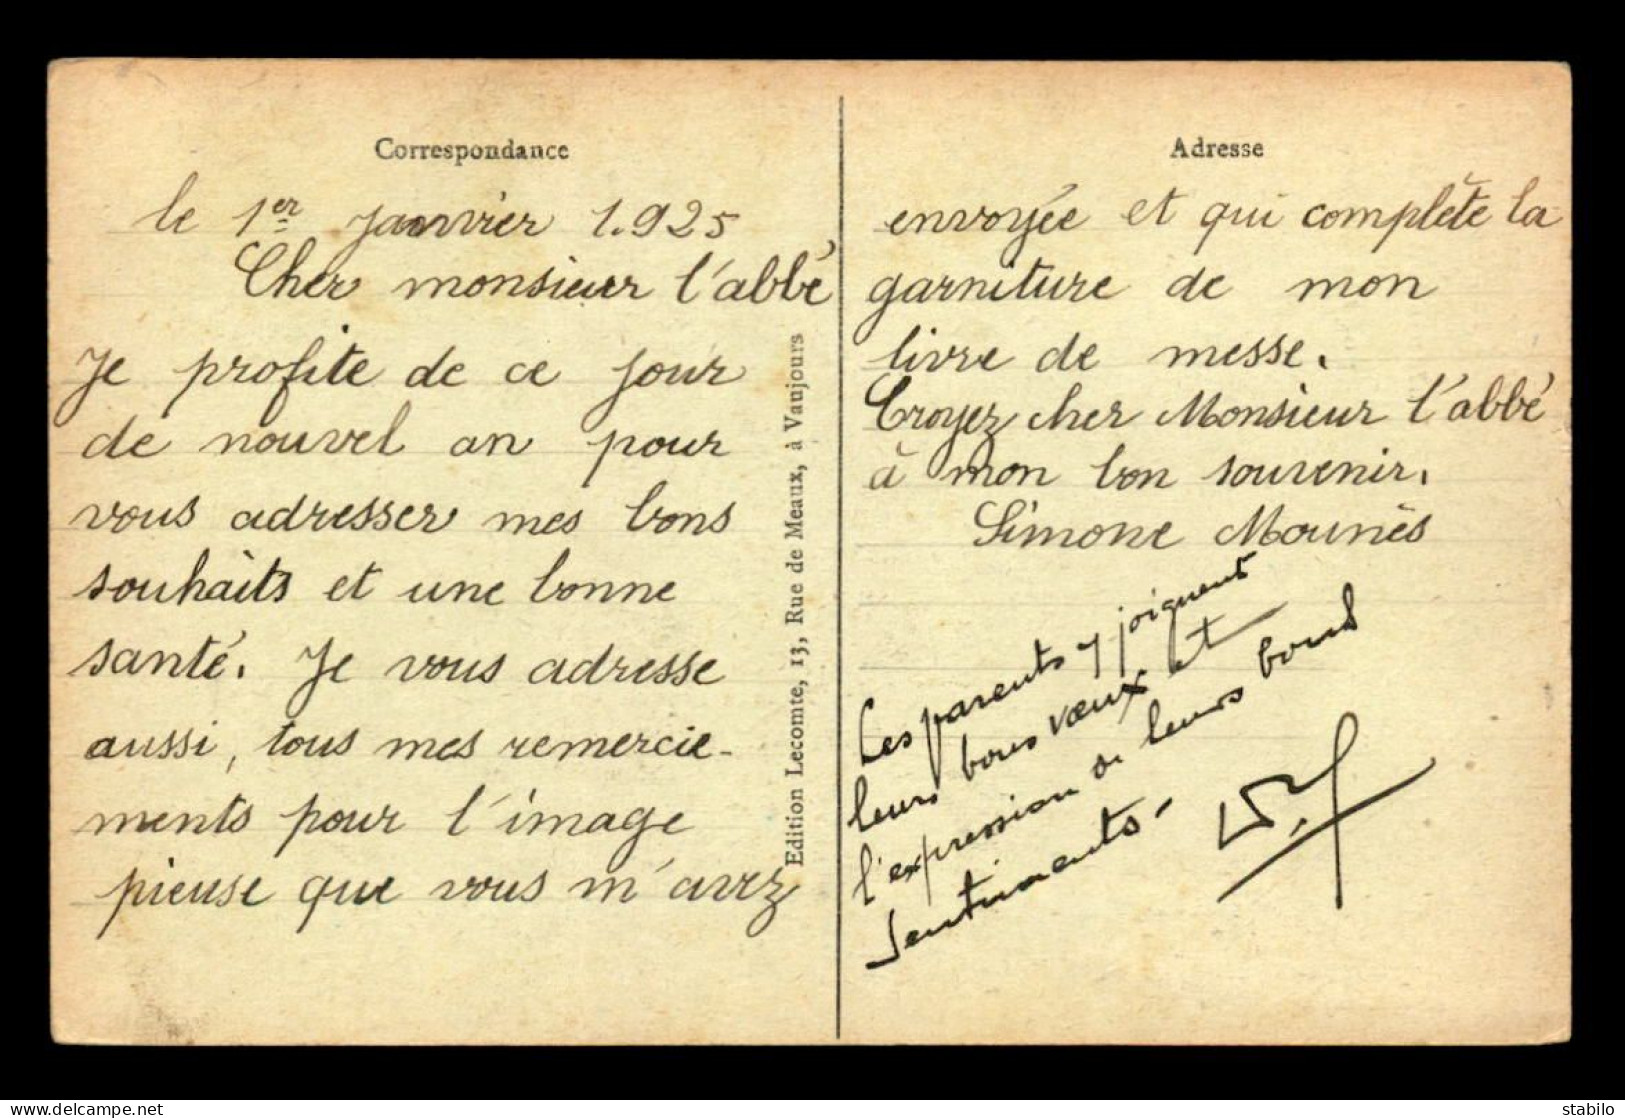 Correspondance
le 1er janvier 1.925
Cher monsieur l'abbé
Je profite de ce jour
de nouvel an pour
vous adresser mes bons
souhaits et une bonne
santé. Je vous adresse
aussi, tous mes remercie-
ments pour l'image
pieuse que vous m'avez
Edition Lecomte, 13, Rue de Meaux, à Vaujours
Adresse
envoyée et qui complète la
garniture de mon
livre de messe.
Croyez cher Monsieur l'abbé
à mon bon souvenir.
Simone Mounès
Les parents y joignent
leurs bons vœux et
l'expression de leurs bons
sentiments -
delcampe.net
stabilo